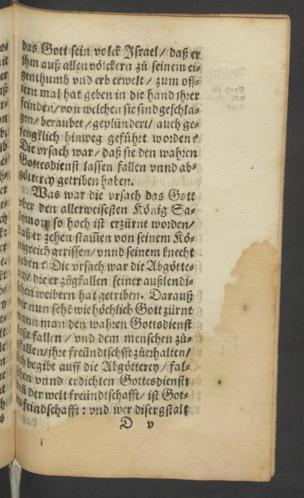 das Gott sein volck Israel / daß er
ihm auß allen völckern zů seinem ei-
genthumb vnd erb erwelt / zum off-
tern mal hat geben in die hand ihrer
feinden / von welchen sie sind geschla-
gen / beraubet / geplündert / auch ge-
fengklich hinweg geführt worden?
Die vrsach war / daß sie den wahren
Gottesdienst lassen fallen vnnd ab-
götterey getriben haben.
Was war die vrsach das Gott
vber den allerweisesten König Sa-
lomon so hoch ist erzürnt worden /
daß er zehen stammen von seinem Kö-
nigreich gerissen / vnnd seinem knecht
geben? Die vrsach war die Abgötte-
rey / die er zůgfallen seiner außlendi-
schen weibern hat getriben. Darauß
wir nun seht wie höchlich Gott zürnt
wann man den wahren Gottsdienst
laßt fallen / vnd dem menschen zů-
gfallen / ihre freündtschafft zů erhalten /
sich begibt auff die Abgötterey / fal-
schen vnnd erdichten Gottesdienst:
der welt freündtschafft / ist Got-
tes feindschafft: vnd wer disergstalt
D v